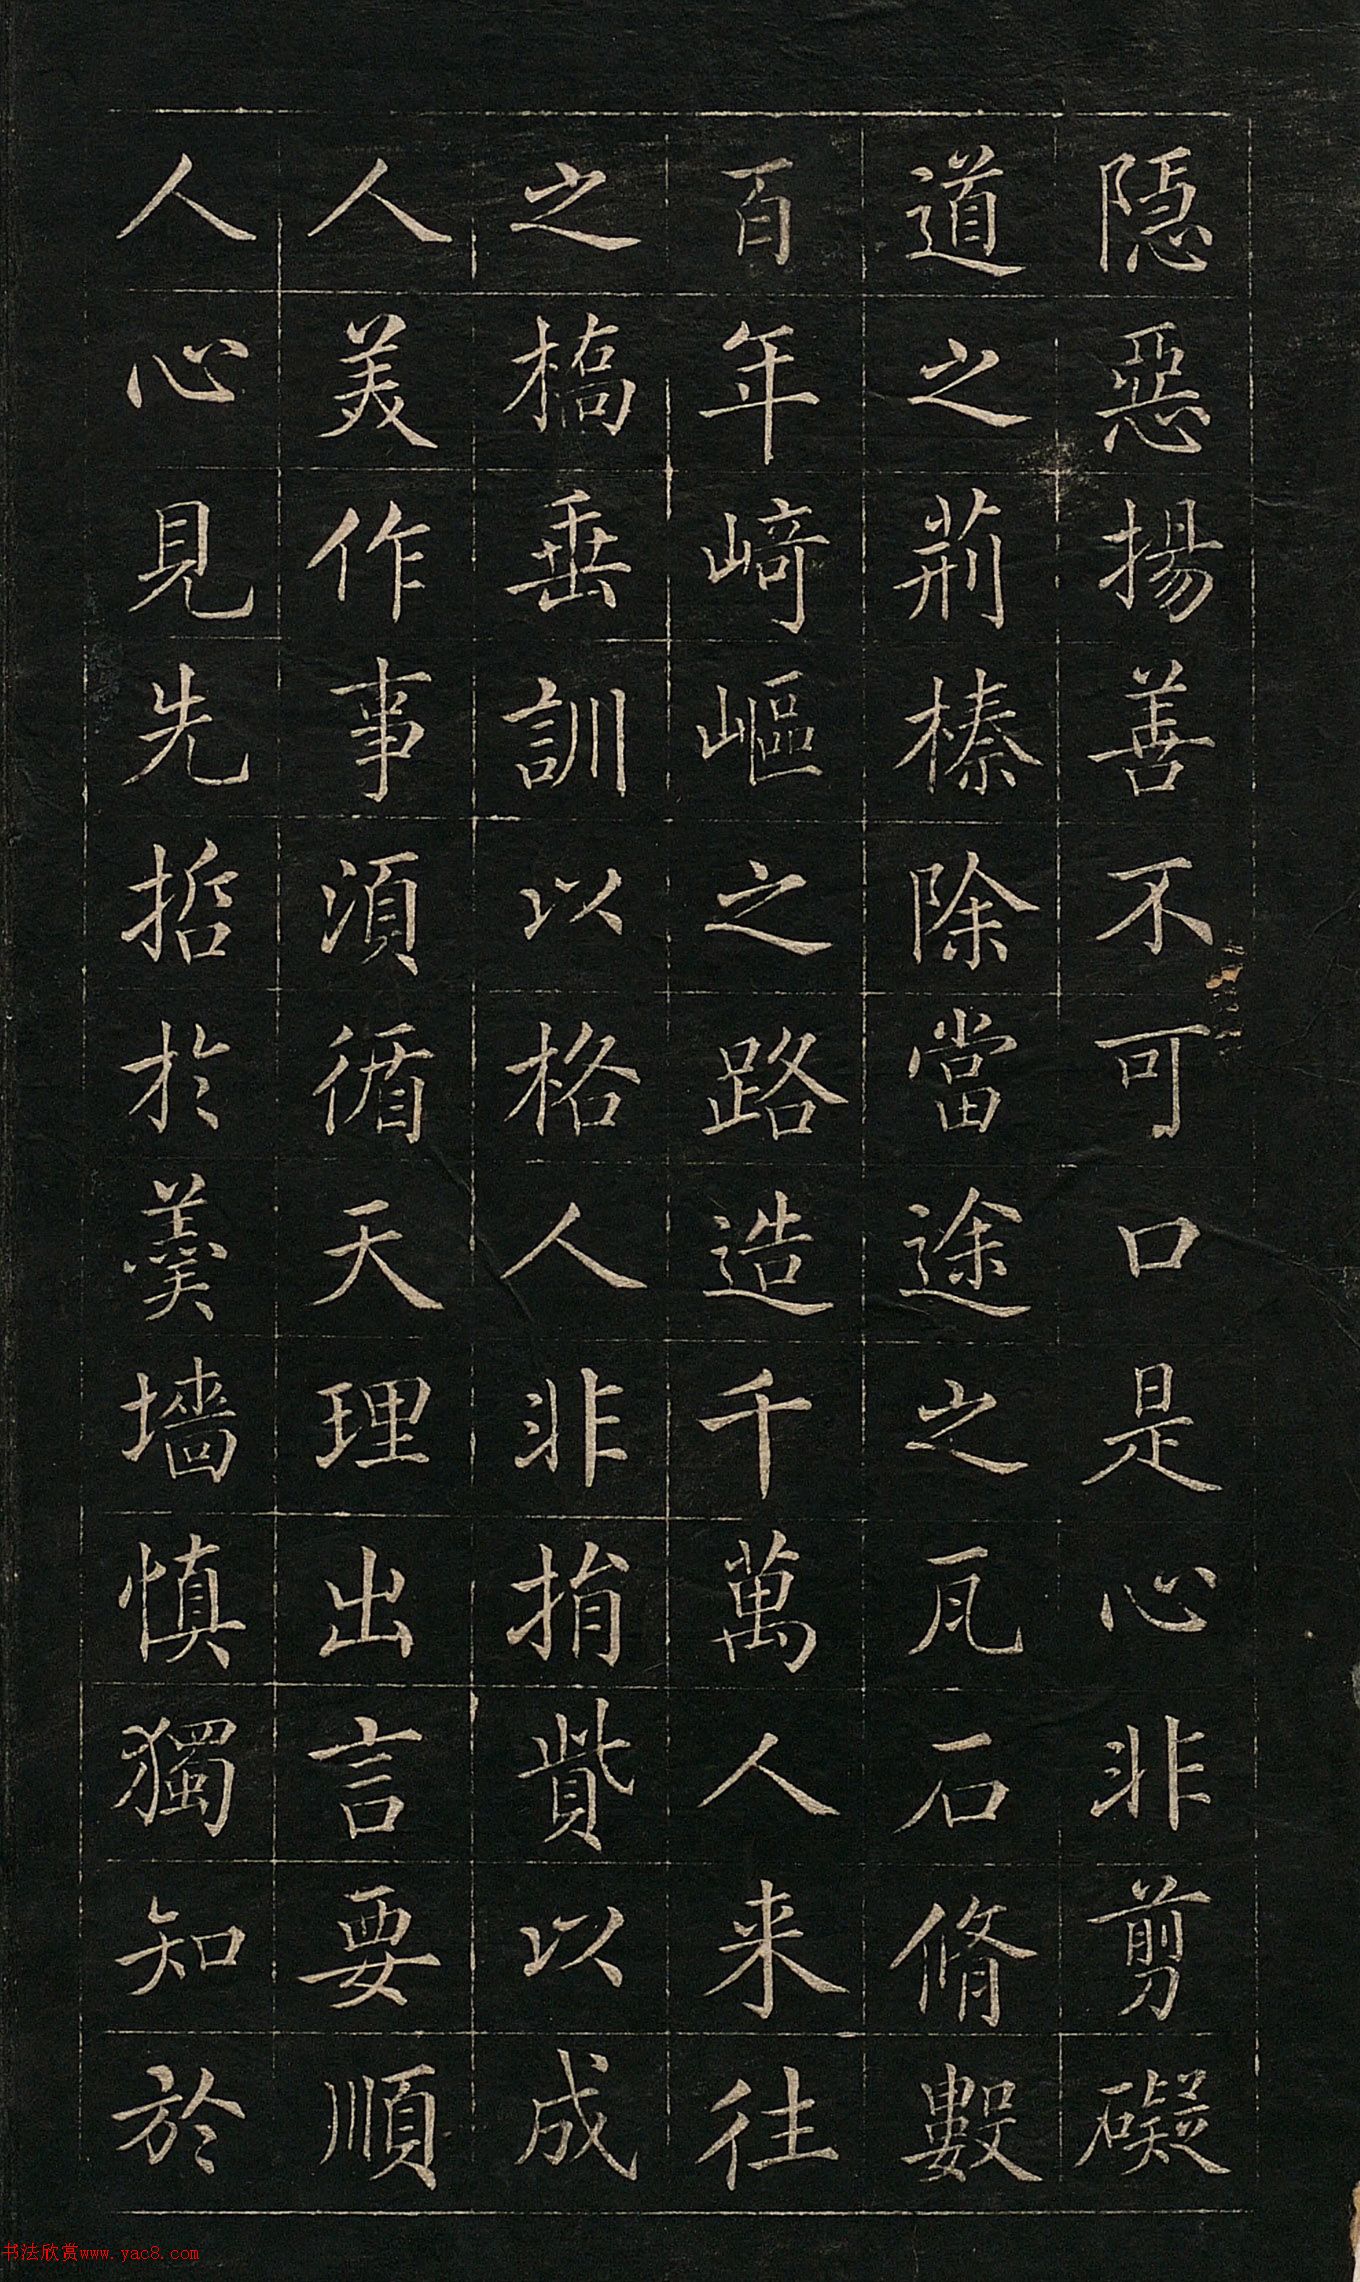 隠惡揚善不可口是心非剪礙
道之荊榛除當途之瓦石脩數
百年崎嶇之路造千萬人来往
之橋垂訓以格人非捐貲以成
人美作事須循天理出言要順
人心見先哲於羹墻慎獨知於
书法欣赏www.yac8.com